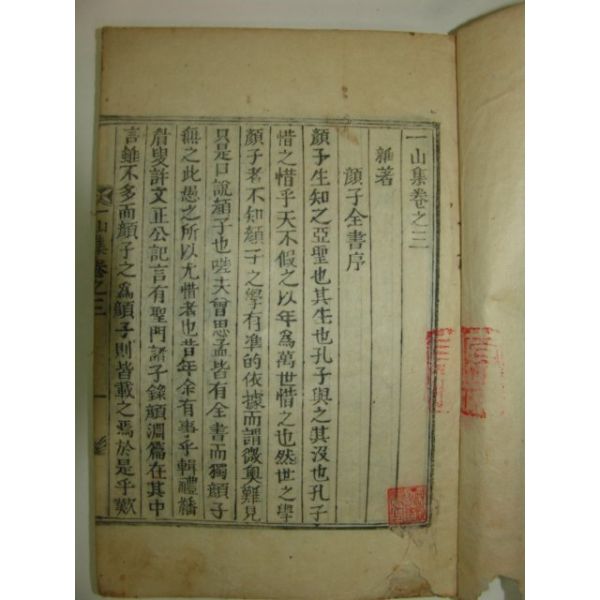 一山集卷之三
雜著
顔子全書序
顔子生知之亞聖也其生也孔子與之其沒也孔子
惜之惜乎天不假之以年爲萬世惜之也然世之學
顔子者不知顔子之學有準的依據而謂微奧難見
只是口說顔子也嗟夫曾思孟皆有全書而獨顔子
無之此愚之所以尤惜者也昔年余有事乎輯禮播
眉叟許文正公記言有聖門諸子錄顔淵篇在其中
言雖不多而顔子之爲顔子則皆載之焉於是乎歎
一山集卷之三 一